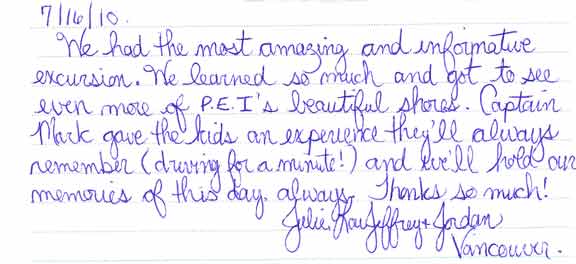 7/16/10.
We had the most amazing and informative
excursion. We learned so much and got to see
even more of P.E.I's beautiful shores. Captain
Mark gave the kids an experience they'll always
remember (driving for a minute!) and we'll hold our
memories of this day, always. Thanks so much!
Julie, Jeffrey + Jordan
Vancouver.